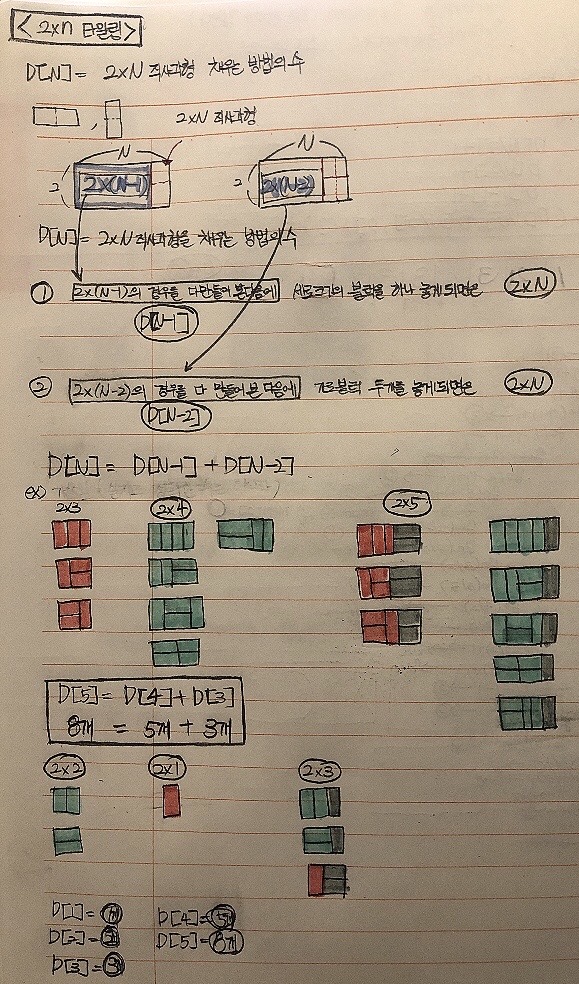 <2×n 타일링>
D[N] = 2×N 직사각형 채우는 방법의 수
, 2×N 직사각형
N N
2 2×(N-1) 2 2×(N-2)
D[N] = 2×N 직사각형을 채우는 방법의 수
① 2×(N-1)의 경우를 다 만들어 본 다음에 세로크기의 블럭을 하나 놓게 되면은 2×N
D[N-1]
② 2×(N-2)의 경우를 다 만들어 본 다음에 가로블럭 두개를 놓게 되면은 2×N
D[N-2]
D[N] = D[N-1] + D[N-2]
ex)
2×3 2×4 2×5
D[5] = D[4] + D[3]
8개 = 5개 + 3개
2×2 2×1 2×3
D[1] = D[4] = 5개
D[2] = D[5] = 8개
D[3] = 3